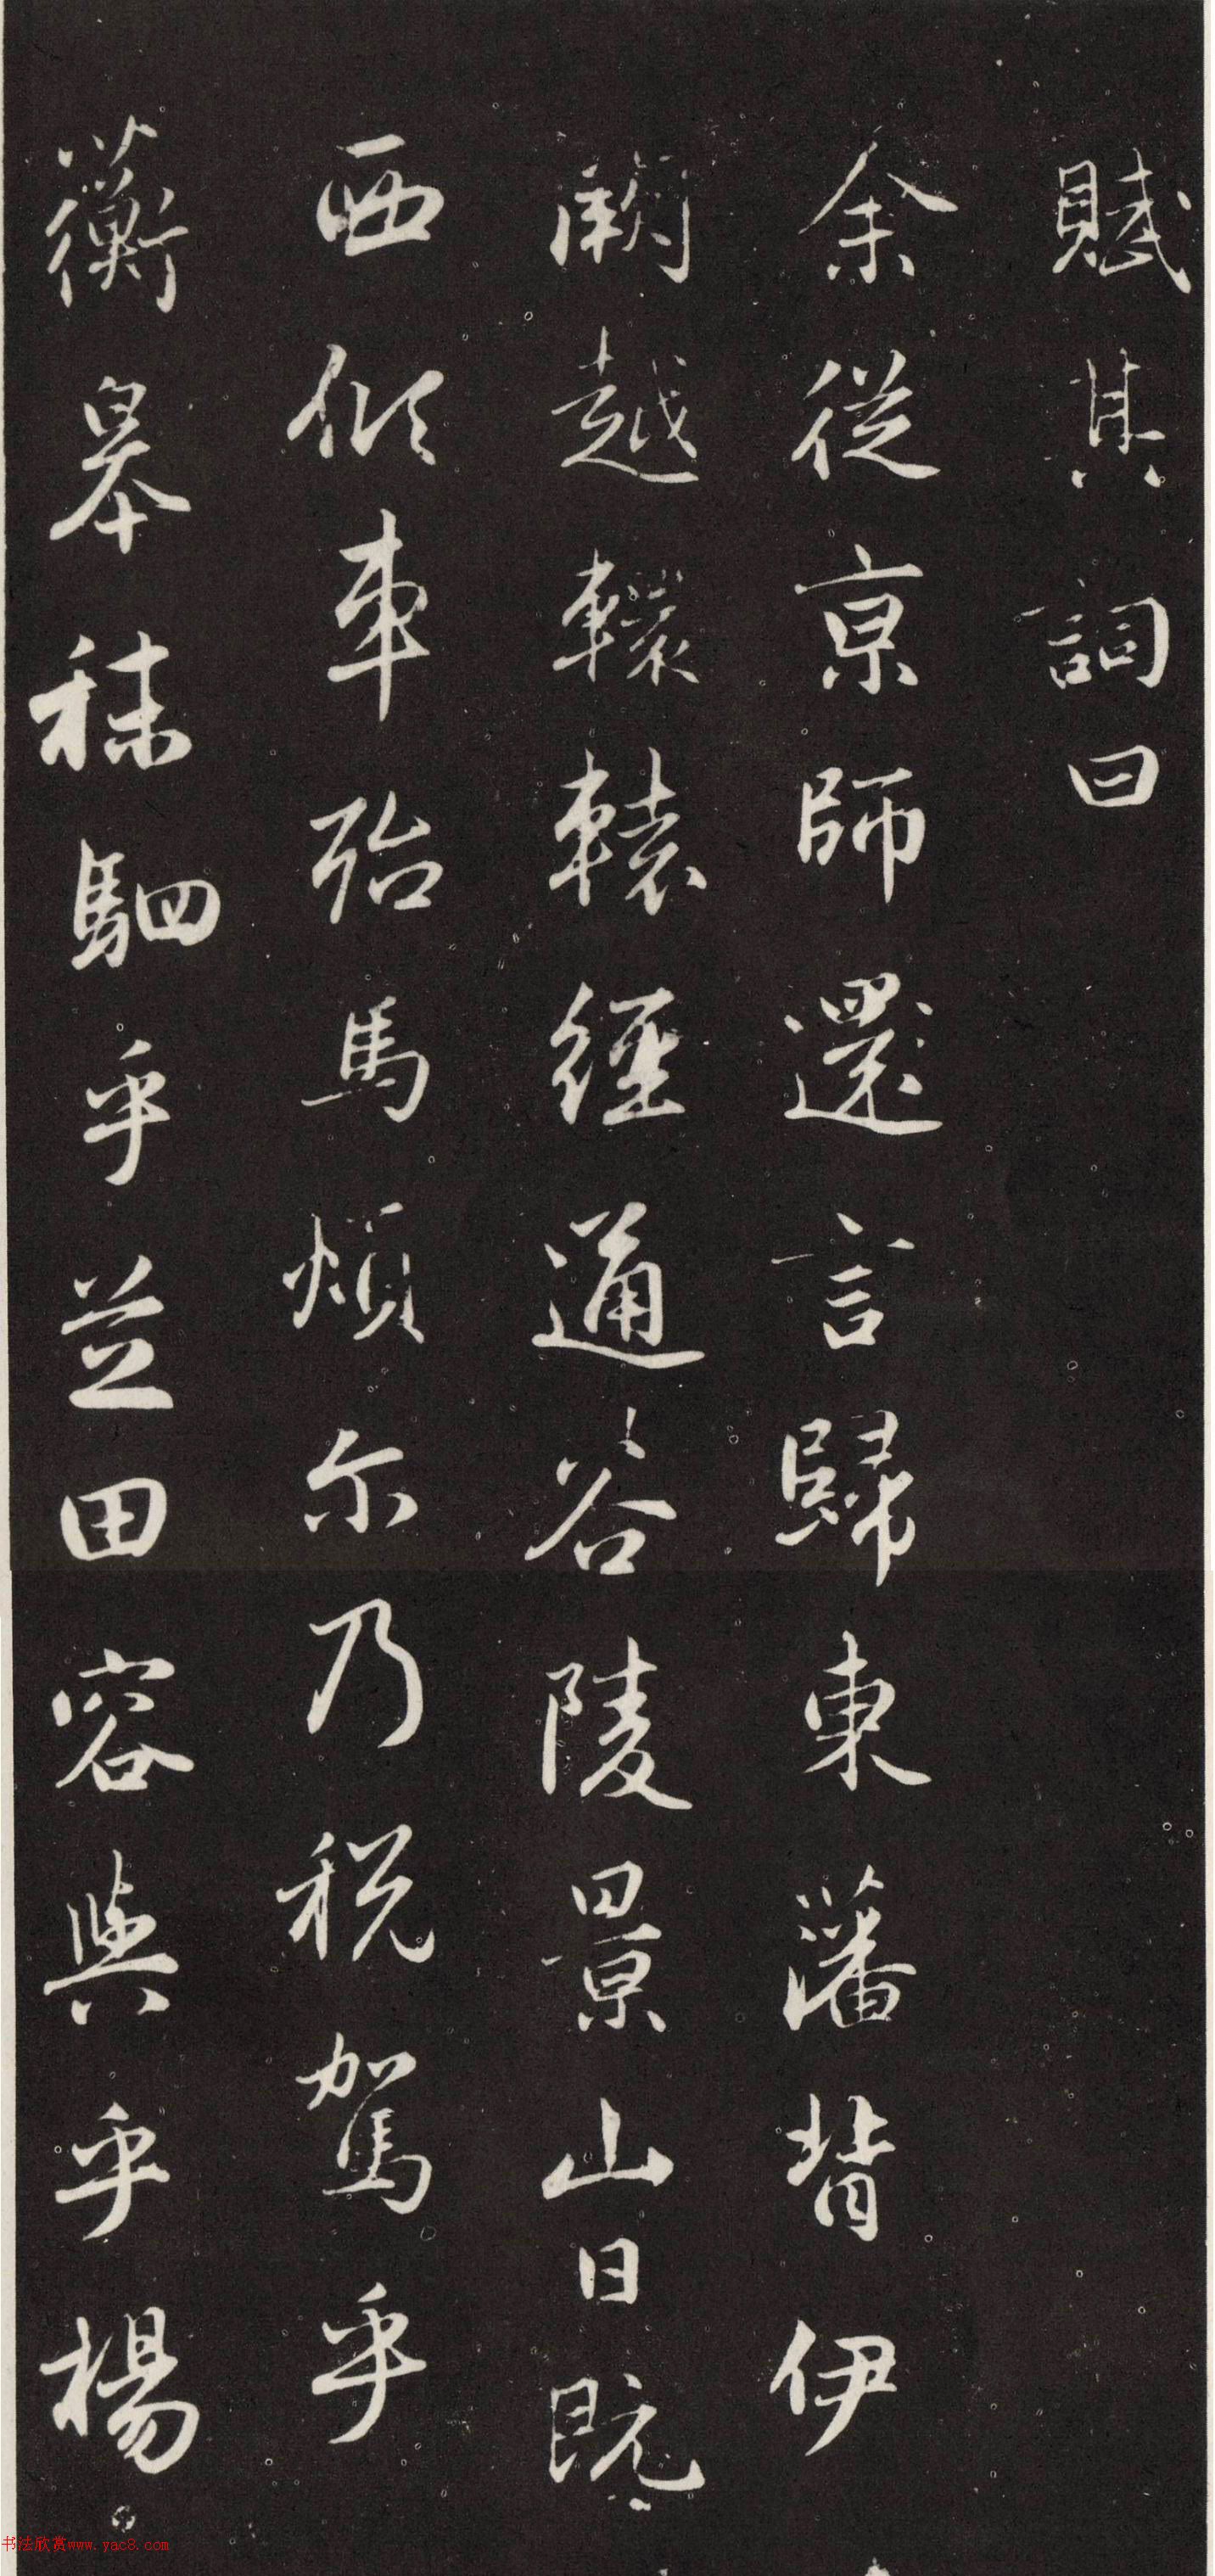 賦其詞曰
余從京師還言歸東藩背伊
闕越轘轅經通谷陵景山日既
西傾車殆馬煩尔乃税駕乎
蘅皋秣駟乎芝田容與乎楊
书法欣赏www.yac8.com